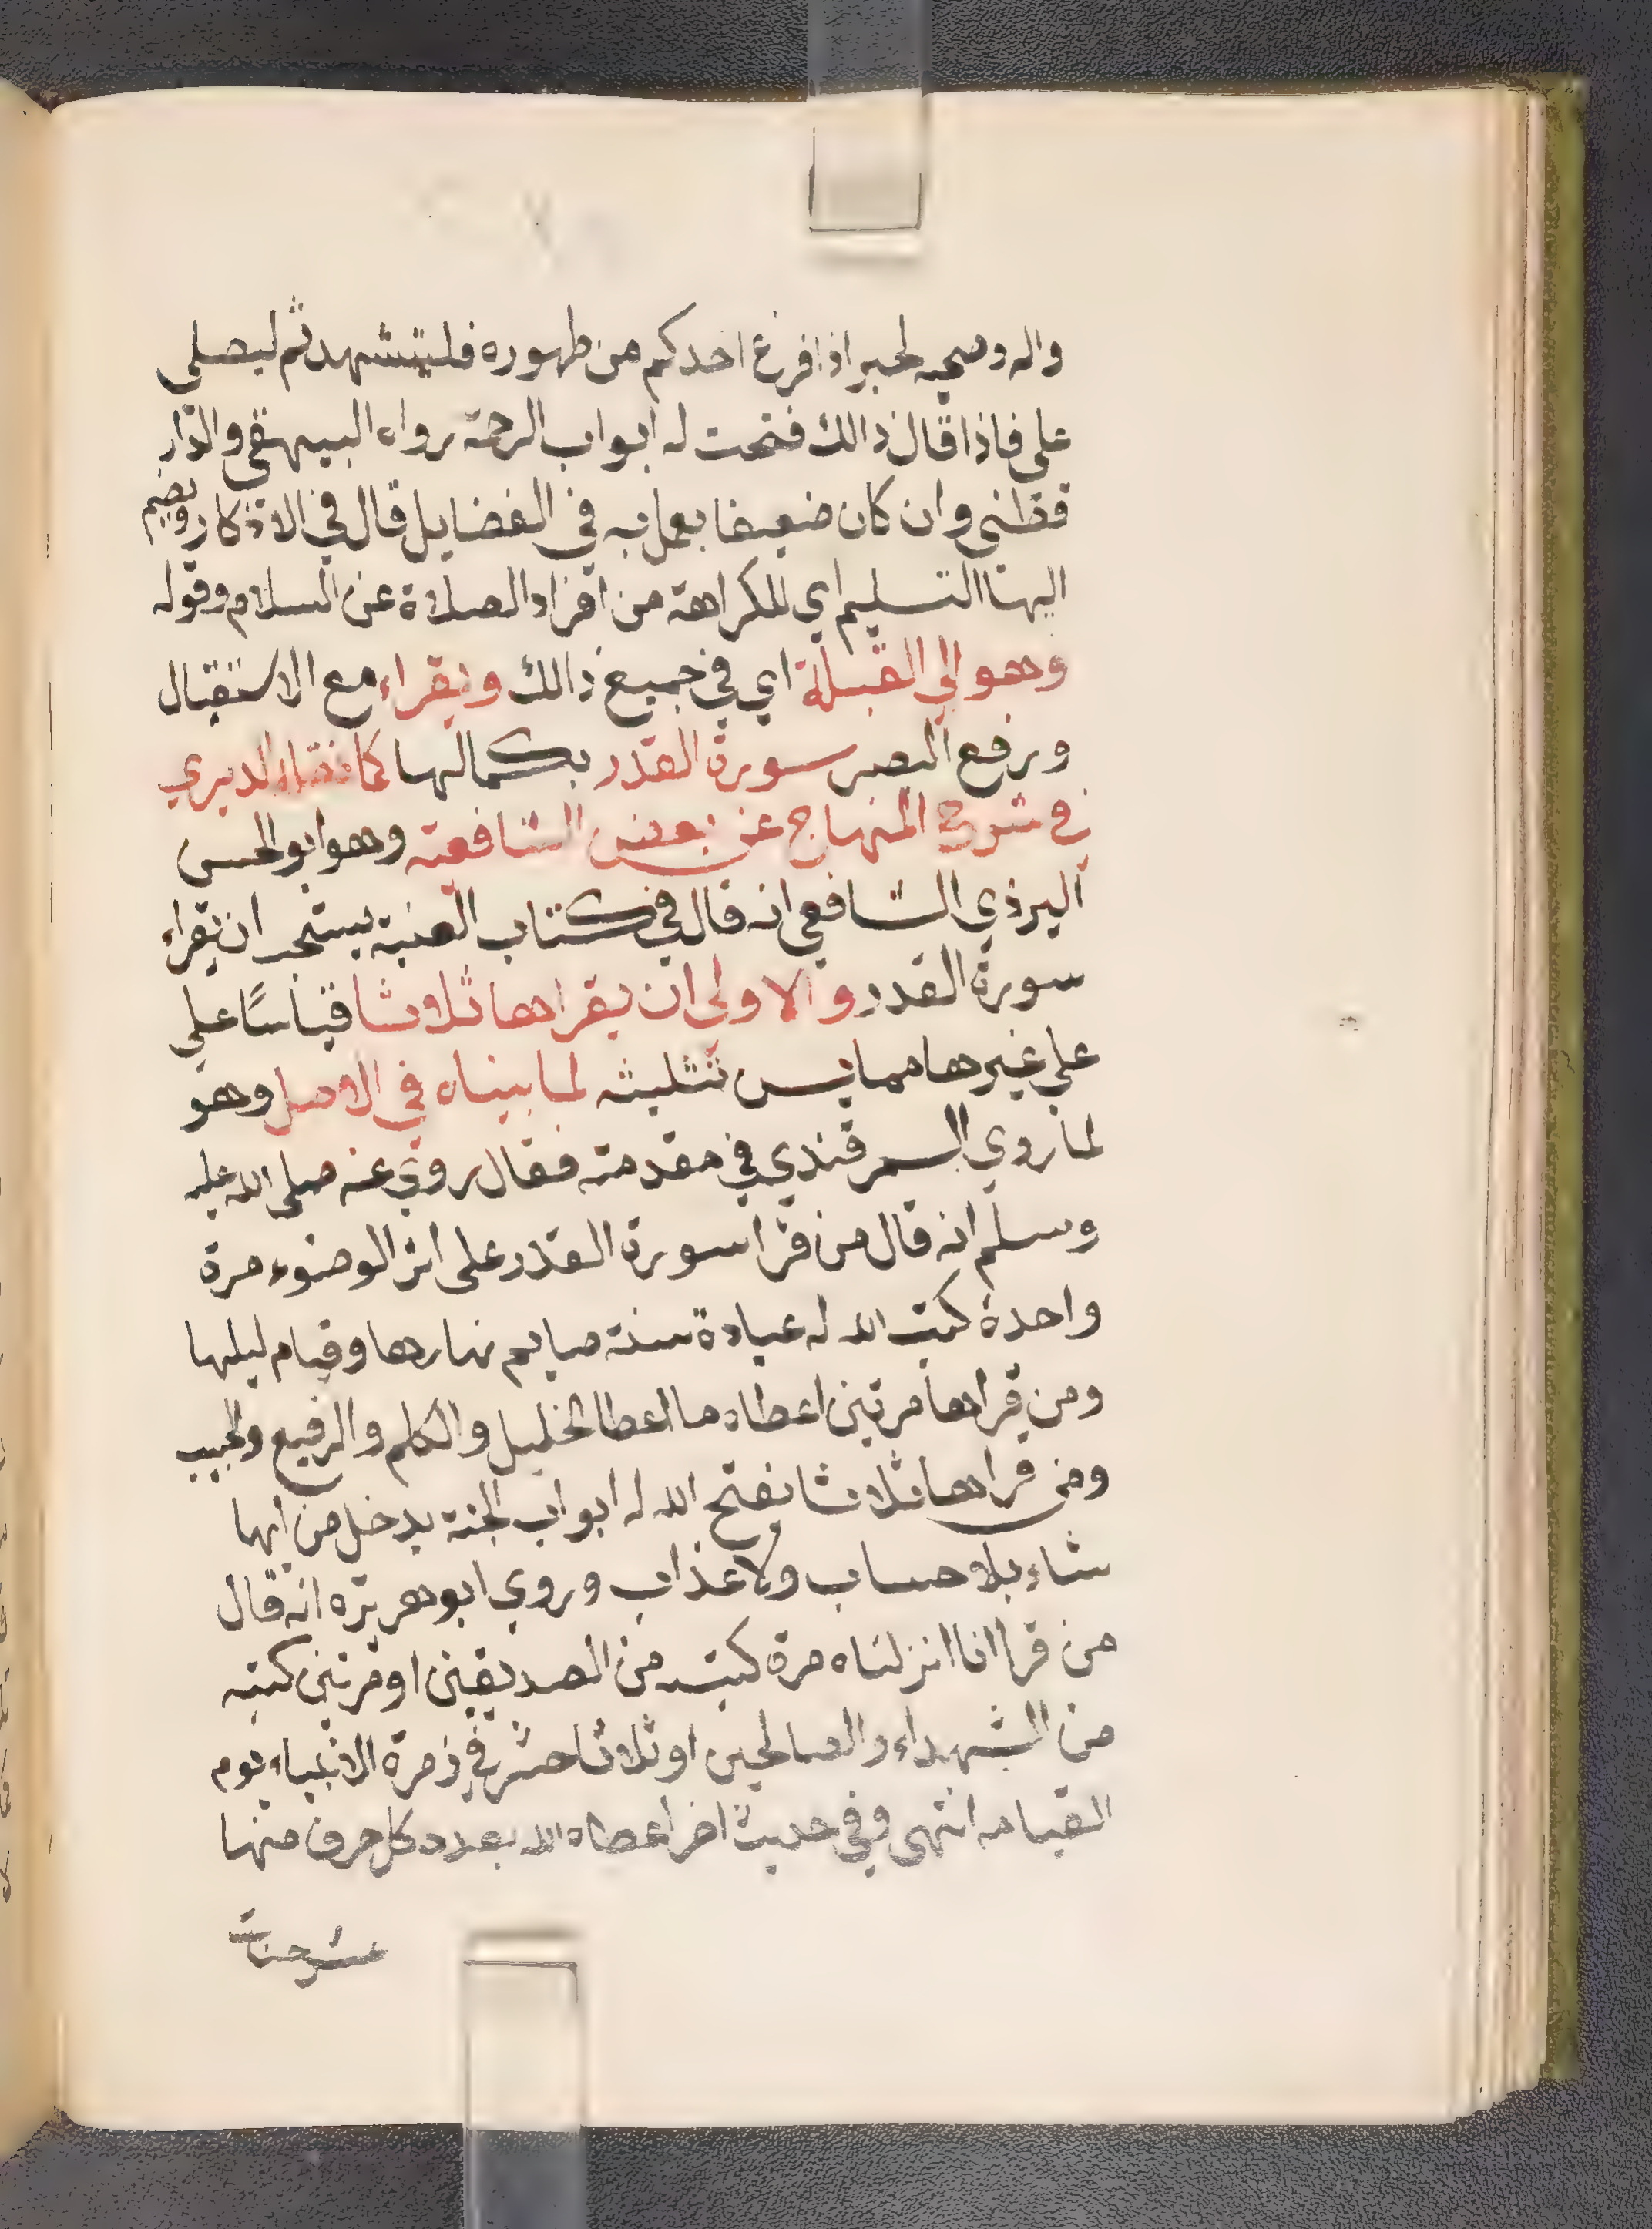 واله وصحبه لخبر اذا فرغ احدكم من طهوره فليتشهد ثم ليصلي
علي فاذا قال ذالك فتحت له ابواب الرحمة رواه البيهقي والدار
قطني وان كان ضعيفا يعمل به في الفضايل قال في الاذكار ويضم
اليها التسليم اي للكراهة من افراد الصلاة عن السلام وقوله
وهو الى القبلة اي في جميع ذالك ويقراء مع الاستقبال
ورفع البصر سورة القدر بكمالها كما نقله الديري
في شرح المنهاج عن بعض الشافعية وهو ابو الحسن
اليرذي الشافعي انه قال في كتاب الغنية يستحب ان يقراء
سورة القدر والاولى ان يقراها ثلاثا قياسًا علي
علي غيرها مما يسن تثليثه لما بيناه في الاصل وهو
لما روي السمرقندي في مقدمته فقال روي عنه صلى الله عليه
وسلم انه قال من قرا سورة القدر على اثر الوضوء مرة
واحدة كتب الله له عبادة سنة صايم نهارها وقيام ليلها
ومن قراها مرتين اعطاه ما اعطا الخليل والكلم والرفيع والحبيب
ومن قراها ثلاثا يفتح الله له ابواب الجنة يدخل من ايها
شاء بلا حساب ولا عذاب وروي ابو هريرة انه قال
من قرا انا انزلناه مرة كتب من الصديقين او مرتين كتبه
من الشهداء والصالحين او ثلاثا حشر في زمرة الانبياء يوم
القيامه انتهى وفي حديث اخر اعطاه الله بعدد كل حرف منها
عشر حسنات